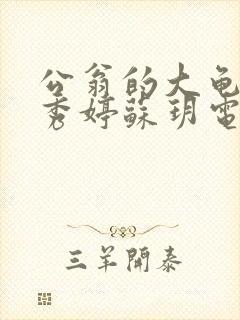 公翁的大龟
秀婷蘇玥電
三羊開泰